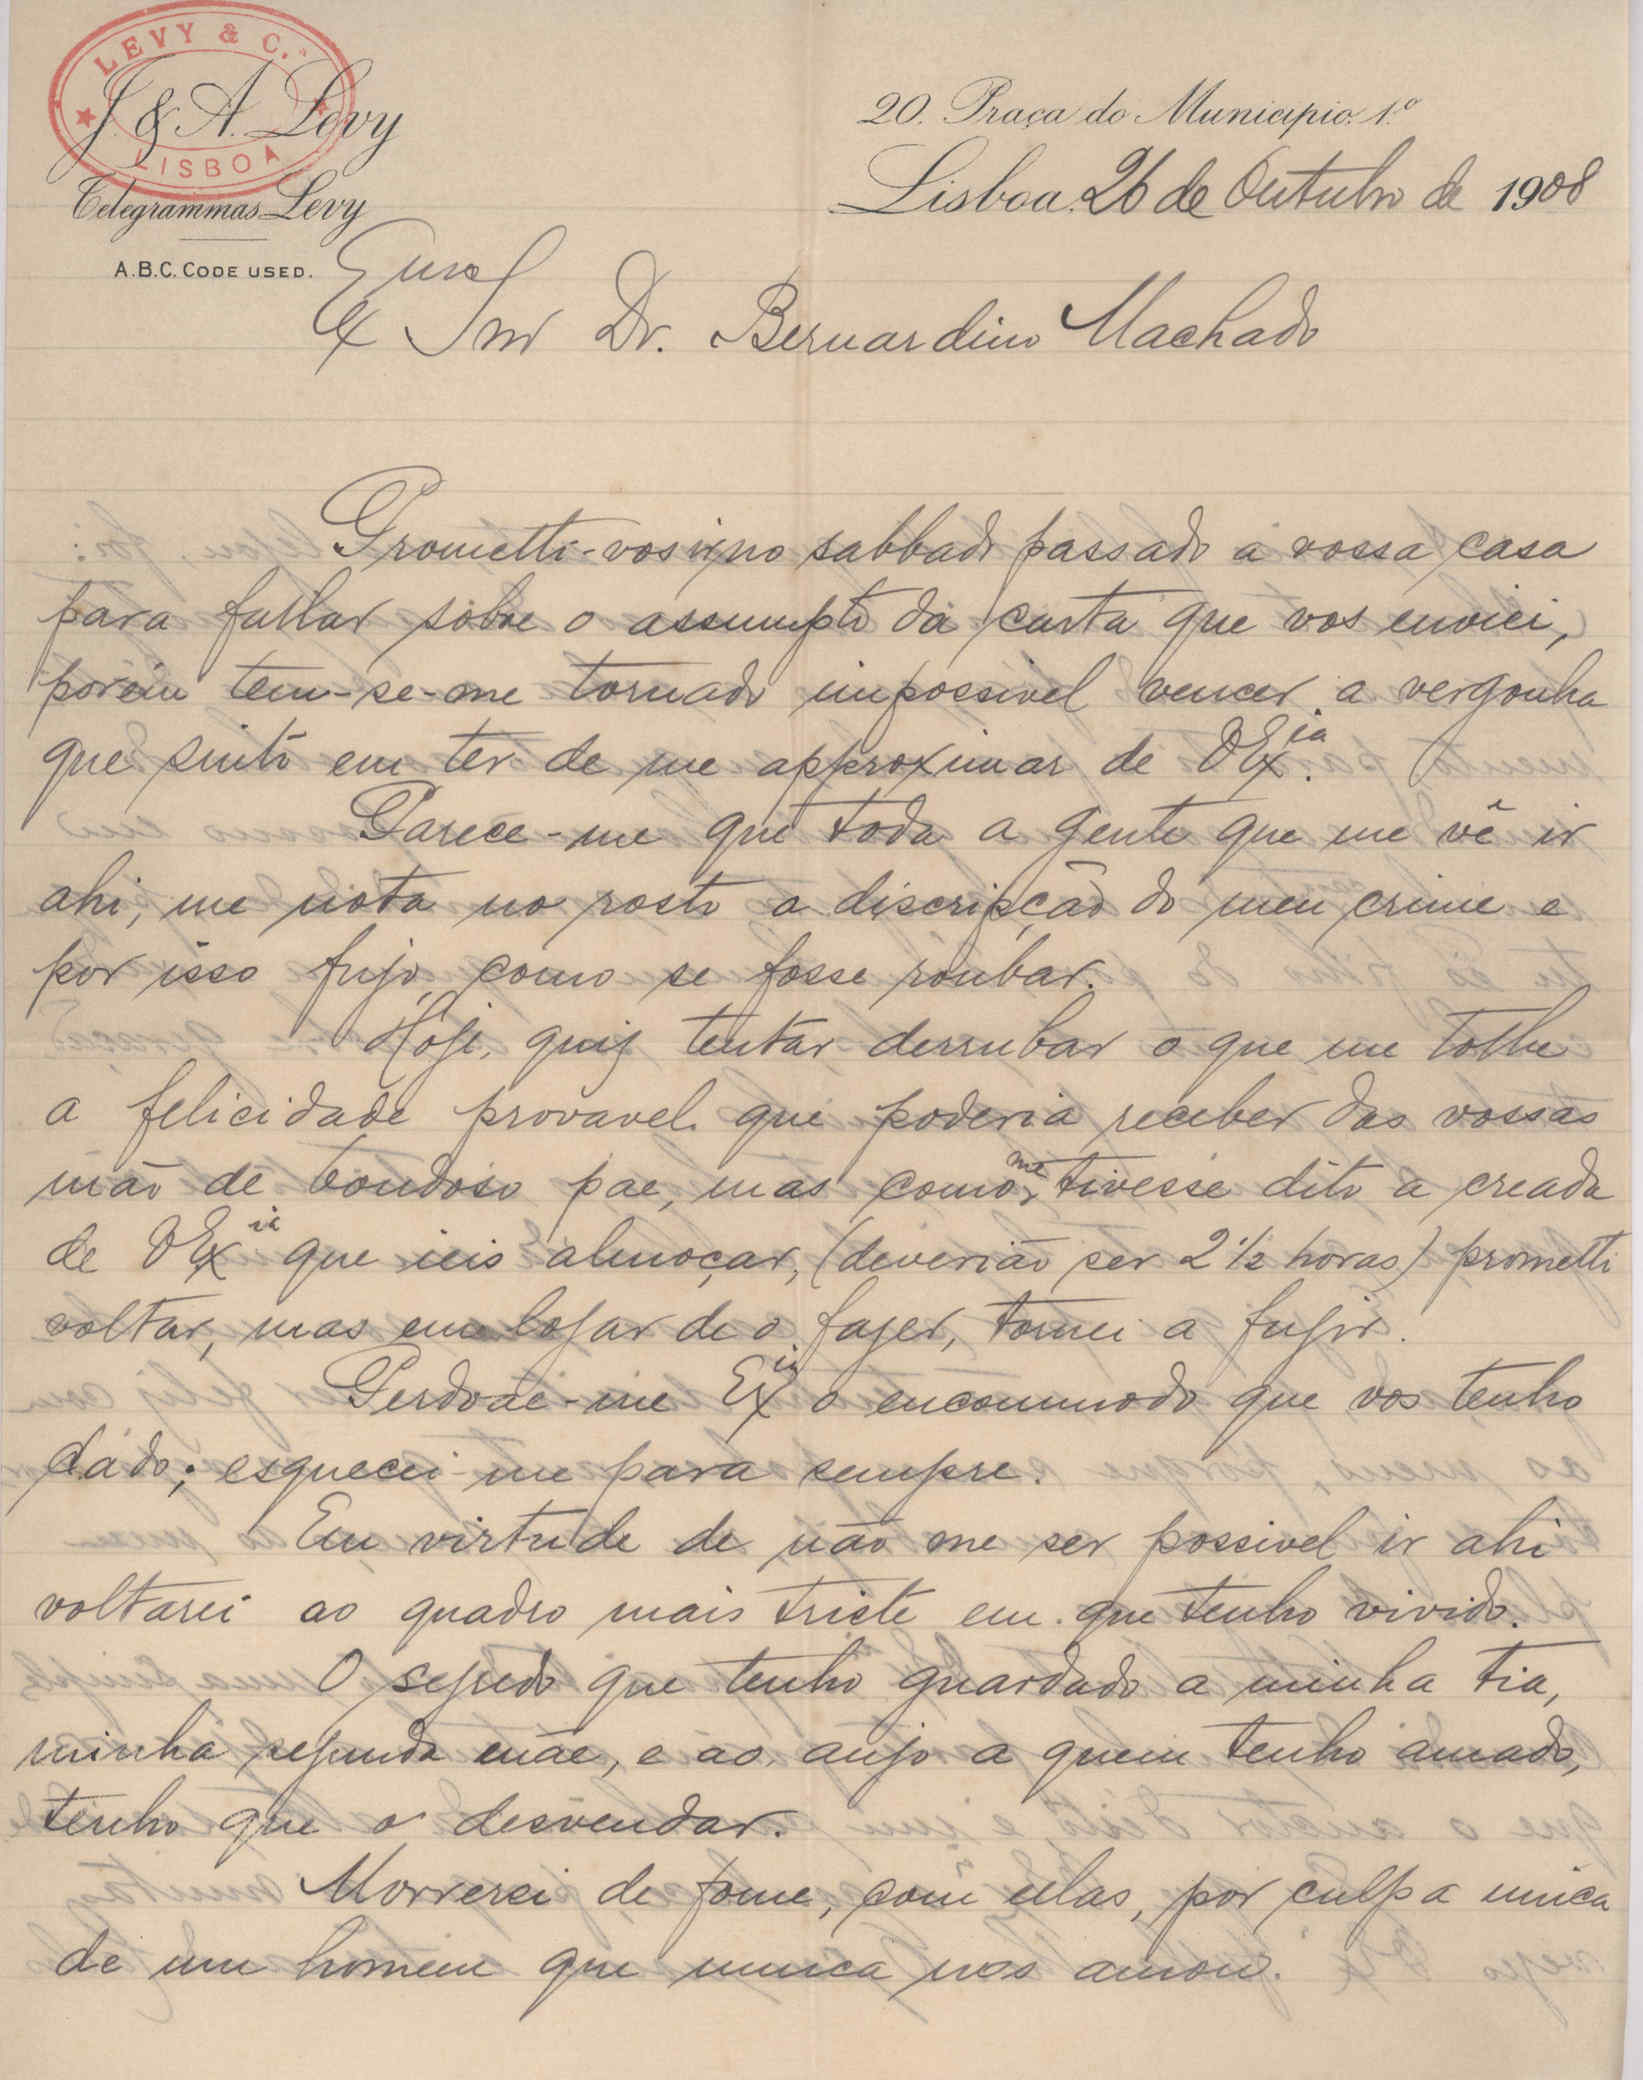 LEVY & C.ª
LISBOA
J. & A. Levy
Telegrammas Levy
A.B.C. CODE USED.
20. Praça do Municipio. 1.º
Lisboa. 26 de Outubro de 1908
Exmo
Snr Dr. Bernardino Machado
Prometti-vos ir, no sabbado passado a vossa casa
para fallar sobre o assumpto da carta que vos enviei,
porém tem-se-me tornado impossivel vencer a vergonha
que sinto em ter de me approximar de VEx.ia
Parece-me que toda a gente que me vê ir
ahi, me nota no rosto a discripção do meu crime e
por isso fujo, como se fosse roubar.
Hoje, quiz tentar derrubar o que me tolhe
a felicidade provavel que poderia receber das vossas
mão de bondoso pae, mas como me tivesse dito a creada
de VEx ia que ieis almoçar, (deverião ser 2 1/2 horas) prometti
voltar, mas em logar de o fazer, tornei a fugir.
Perdoae-me Ex ia o encommodo que vos tenho
dado; esquecei-me para sempre.
Em virtude de não me ser possivel ir ahi
voltarei ao quadro mais triste em que tenho vivido.
O segredo que tenho guardado a minha tia,
minha segunda mãe, e ao anjo a quem tenho amado,
tenho que o desvendar.
Morrerei de fome, com ellas, por culpa unica
de um homem que nunca nos amou.